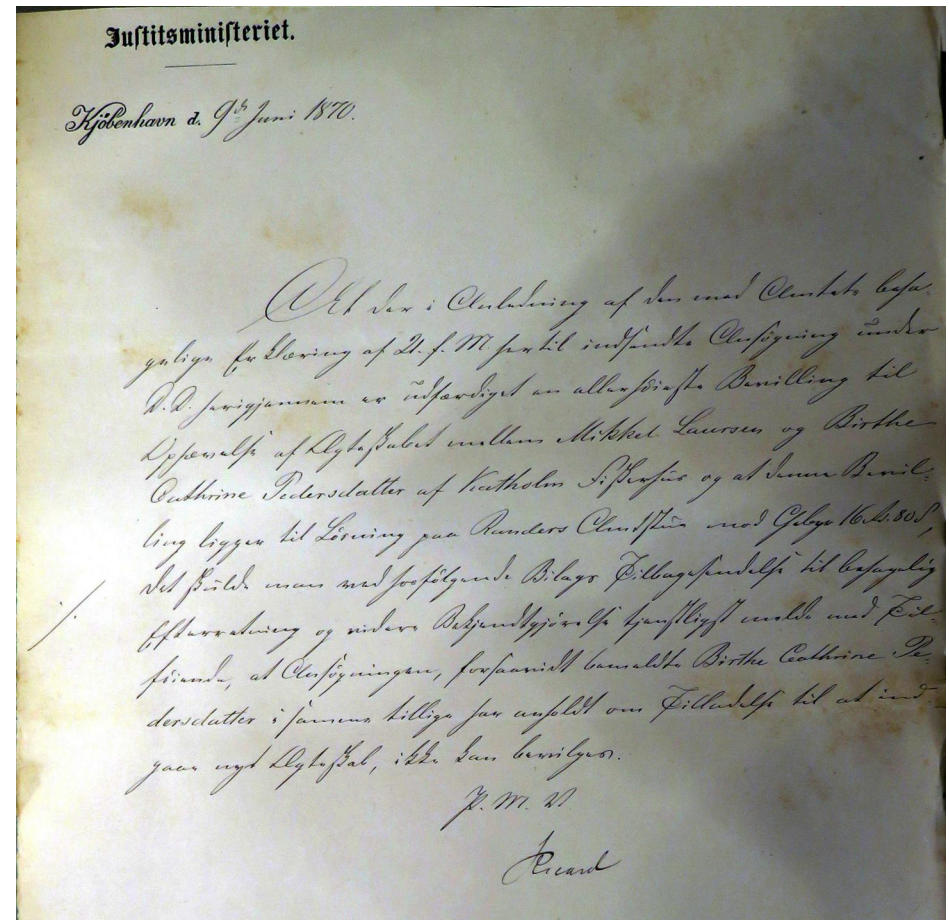 Justitsministeriet.
Kjöbenhavn d. 9de Juni 1870.
At der i Anledning af den med Amtets beha-
gelige Erklæring af 21. f. M. hertil indsendte Ansøgning under
D.D. herigjennem er udfærdiget en allerhøieste Bevilling til
Ophævelse af Ægteskabet mellem Mikkel Laursen og Birthe
Cathrine Pedersdatter af Katholm Fiskerhus og at denne Bevil-
ling ligger til Løsning paa Randers Amtstue mod Gebyr 16 rd. 80 s,
det skulde man ved hosfølgende Bilags Tilbagesendelse til behagelig
Efterretning og videre Bekjendtgjørelse tjenstligst melde med Til-
føiende, at Ansøgningen, forsaavidt bemeldte Birthe Cathrine Pe-
dersdatter i samme tillige har anholdt om Tilladelse til at ind-
gaae nyt Ægteskab, ikke kan bevilges.
P. M. V.
Ricard